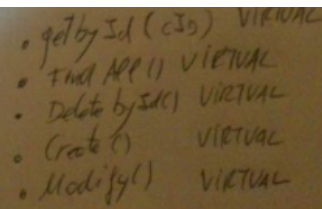 • getby Id (cId) VIRTUAL
• Find All () VIRTUAL
• Delete by Id() VIRTUAL
• Create () VIRTUAL
• Modify() VIRTUAL